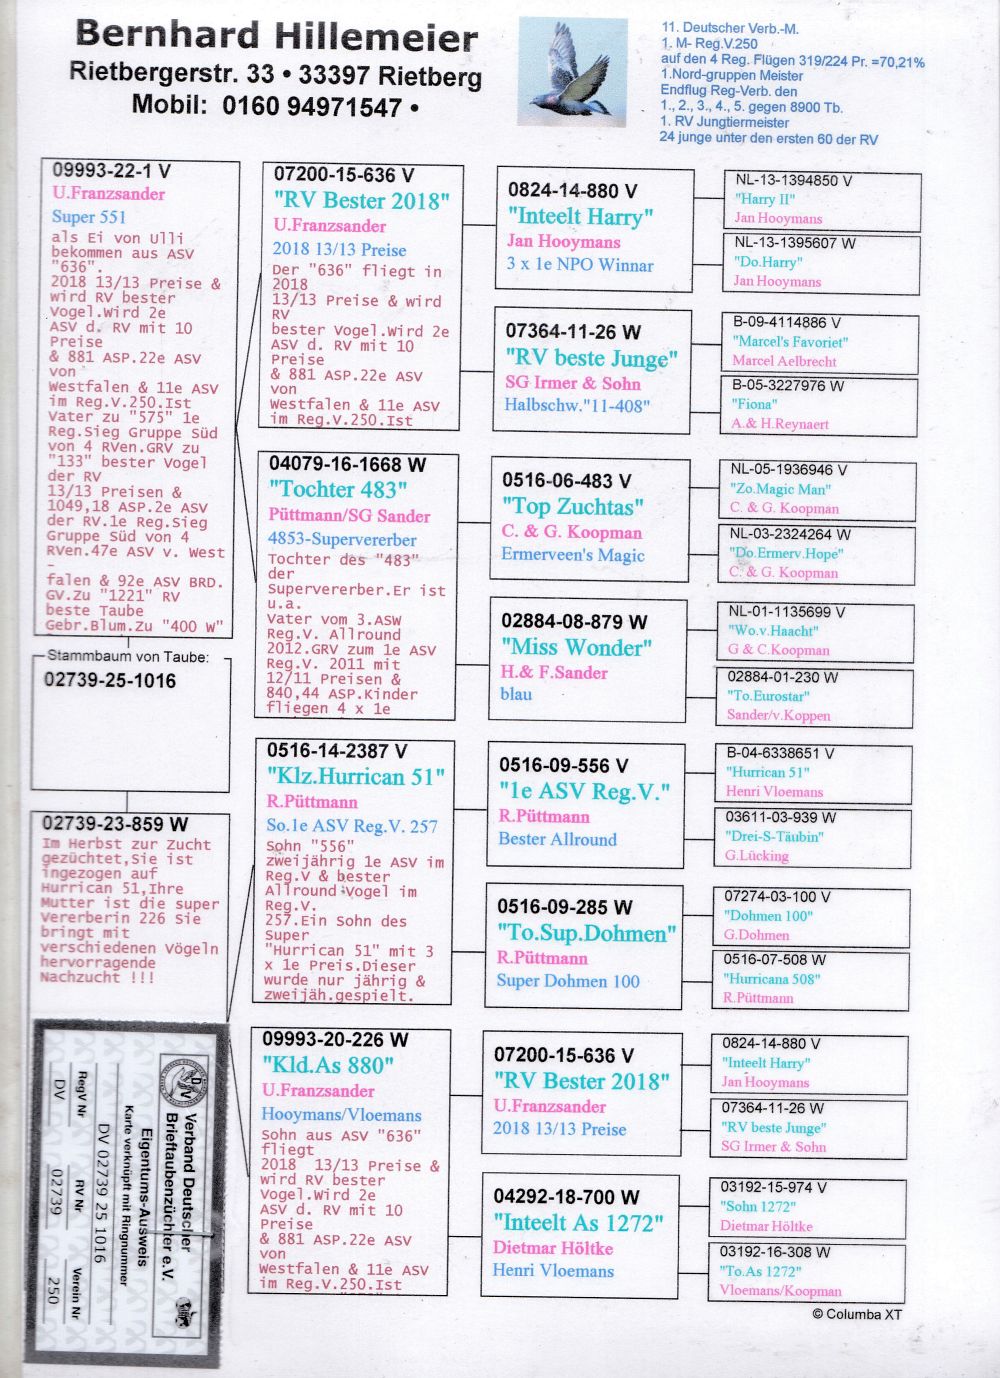 Bernhard Hillemeier
Rietbergerstr. 33 • 33397 Rietberg
Mobil: 0160 94971547 •
11. Deutscher Verb.-M.
1. M- Reg.V.250
auf den 4 Reg. Flügen 319/224 Pr. =70,21%
1.Nord-gruppen Meister
Endflug Reg-Verb. den
1., 2., 3., 4., 5. gegen 8900 Tb.
1. RV Jungtiermeister
24 junge unter den ersten 60 der RV
09993-22-1 V
U.Franzsander
Super 551
als Ei von Ulli
bekommen aus ASV
"636".
2018 13/13 Preise &
wird RV bester
Vogel.Wird 2e
ASV d. RV mit 10
Preise
& 881 ASP.22e ASV
von
Westfalen & 11e ASV
im Reg.V.250.Ist
Vater zu "575" 1e
Reg.Sieg Gruppe Süd
von 4 RVen.GRV zu
"133" bester Vogel
der RV
13/13 Preisen &
1049,18 ASP.2e ASV
der RV.1e Reg.Sieg
Gruppe Süd von 4
RVen.47e ASV v. West
-
falen & 92e ASV BRD.
GV.Zu "1221" RV
beste Taube
Gebr.Blum.Zu "400 W"
Stammbaum von Taube:
02739-25-1016
02739-23-859 W
Im Herbst zur Zucht
gezüchtet,Sie ist
ingezogen auf
Hurrican 51,Ihre
Mutter ist die super
Vererberin 226 Sie
bringt mit
verschiedenen Vögeln
hervorragende
Nachzucht !!!
07200-15-636 V
"RV Bester 2018"
U.Franzsander
2018 13/13 Preise
Der "636" fliegt in
2018
13/13 Preise & wird
RV
bester Vogel.Wird 2e
ASV d. RV mit 10
Preise
& 881 ASP.22e ASV
von
Westfalen & 11e ASV
im Reg.V.250.Ist
04079-16-1668 W
"Tochter 483"
Püttmann/SG Sander
4853-Supervererber
Tochter des "483"
der
Supervererber.Er ist
u.a.
Vater vom 3.ASW
Reg.V. Allround
2012.GRV zum 1e ASV
Reg.V. 2011 mit
12/11 Preisen &
840,44 ASP.Kinder
fliegen 4 x 1e
0516-14-2387 V
"Klz.Hurrican 51"
R.Püttmann
So.1e ASV Reg.V. 257
Sohn "556"
zweijährig 1e ASV im
Reg.V & bester
Allround-Vogel im
Reg.V.
257.Ein Sohn des
Super
"Hurrican 51" mit 3
x 1e Preis.Dieser
wurde nur jährig &
zweijäh.gespielt.
09993-20-226 W
"Kld.As 880"
U.Franzsander
Hooymans/Vloemans
Sohn aus ASV "636"
fliegt
2018 13/13 Preise &
wird RV bester
Vogel.Wird 2e
ASV d. RV mit 10
Preise
& 881 ASP.22e ASV
von
Westfalen & 11e ASV
im Reg.V.250.Ist
0824-14-880 V
"Inteelt Harry"
Jan Hooymans
3 x 1e NPO Winnar
07364-11-26 W
"RV beste Junge"
SG Irmer & Sohn
Halbschw."11-408"
0516-06-483 V
"Top Zuchtas"
C. & G. Koopman
Ermerveen's Magic
02884-08-879 W
"Miss Wonder"
H.& F.Sander
blau
0516-09-556 V
"1e ASV Reg.V."
R.Püttmann
Bester Allround
0516-09-285 W
"To.Sup.Dohmen"
R.Püttmann
Super Dohmen 100
07200-15-636 V
"RV Bester 2018"
U.Franzsander
2018 13/13 Preise
04292-18-700 W
"Inteelt As 1272"
Dietmar Höltke
Henri Vloemans
NL-13-1394850 V
"Harry II"
Jan Hooymans
NL-13-1395607 W
"Do.Harry"
Jan Hooymans
B-09-4114886 V
"Marcel's Favoriet"
Marcel Aelbrecht
B-05-3227976 W
"Fiona"
A.& H.Reynaert
NL-05-1936946 V
"Zo.Magic Man"
C. & G. Koopman
NL-03-2324264 W
"Do.Ermerv.Hope"
C. & G. Koopman
NL-01-1135699 V
"Wo.v.Haacht"
G & C.Koopman
02884-01-230 W
"To.Eurostar"
Sander/v.Koppen
B-04-6338651 V
"Hurrican 51"
Henri Vloemans
03611-03-939 W
"Drei-S-Täubin"
G.Lücking
07274-03-100 V
"Dohmen 100"
G.Dohmen
0516-07-508 W
"Hurricana 508"
R.Püttmann
0824-14-880 V
"Inteelt Harry"
Jan Hooymans
07364-11-26 W
"RV beste Junge"
SG Irmer & Sohn
03192-15-974 V
"Sohn 1272"
Dietmar Höltke
03192-16-308 W
"To.As 1272"
Vloemans/Koopman
© Columba XT
Verband Deutscher
Brieftaubenzüchter e.V.
Eigentums-Ausweis
Karte verknüpft mit Ringnummer
DV 02739 25 1016
RegV Nr RV Nr Verein Nr
DV 02739 250